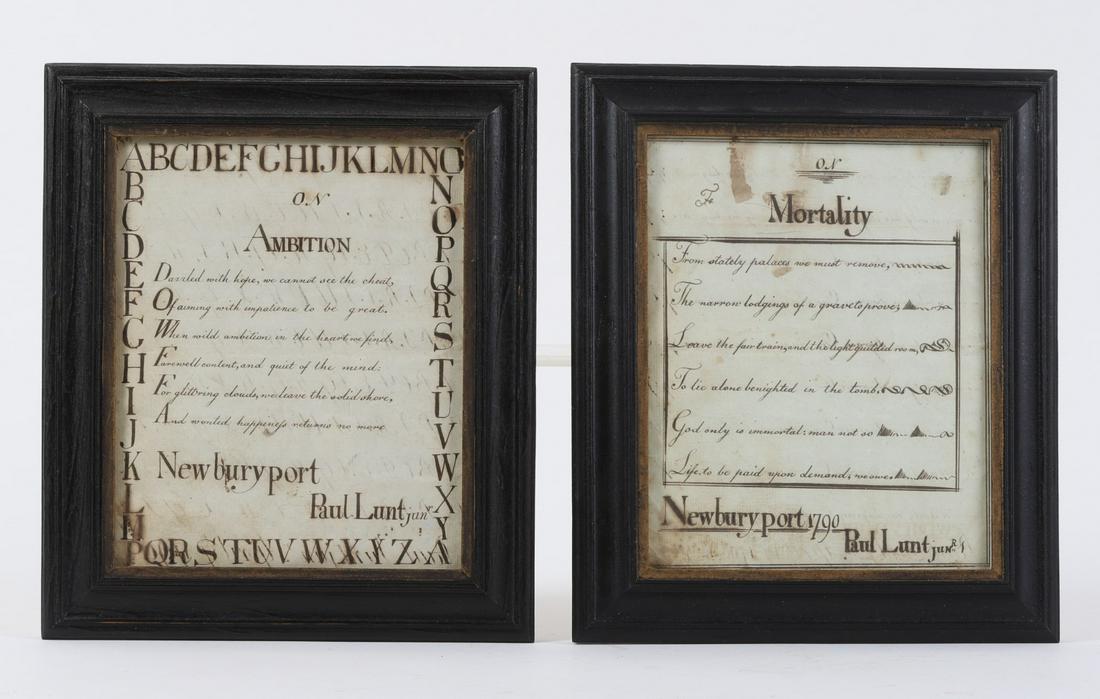 ABCDEFGHIJKLMNO
B
C
D
E
F
G
H
I
J
K
L
M
N
O
P
Q
R
S
T
U
V
W
X
Y
PQRSTUVWXYZ
ON
AMBITION
Dazzled with hope, we cannot see the cheat,
Of aiming with impatience to be great.
When wild ambition in the heart we find,
Farewell content, and quiet of the mind:
For glitt'ring clouds, we leave the solid shore,
And wonted happineſs returns no more
Newburyport
Paul Lunt junr
ON
Mortality
From stately palaces we must remove,
The narrow lodgings of a grave to prove;
Leave the fair train, and the light guilded room,
To lie alone benighted in the tomb.
God only is immortal: man not so
Life, to be paid upon demand, we owe.
Newburyport 1790
Paul Lunt junR